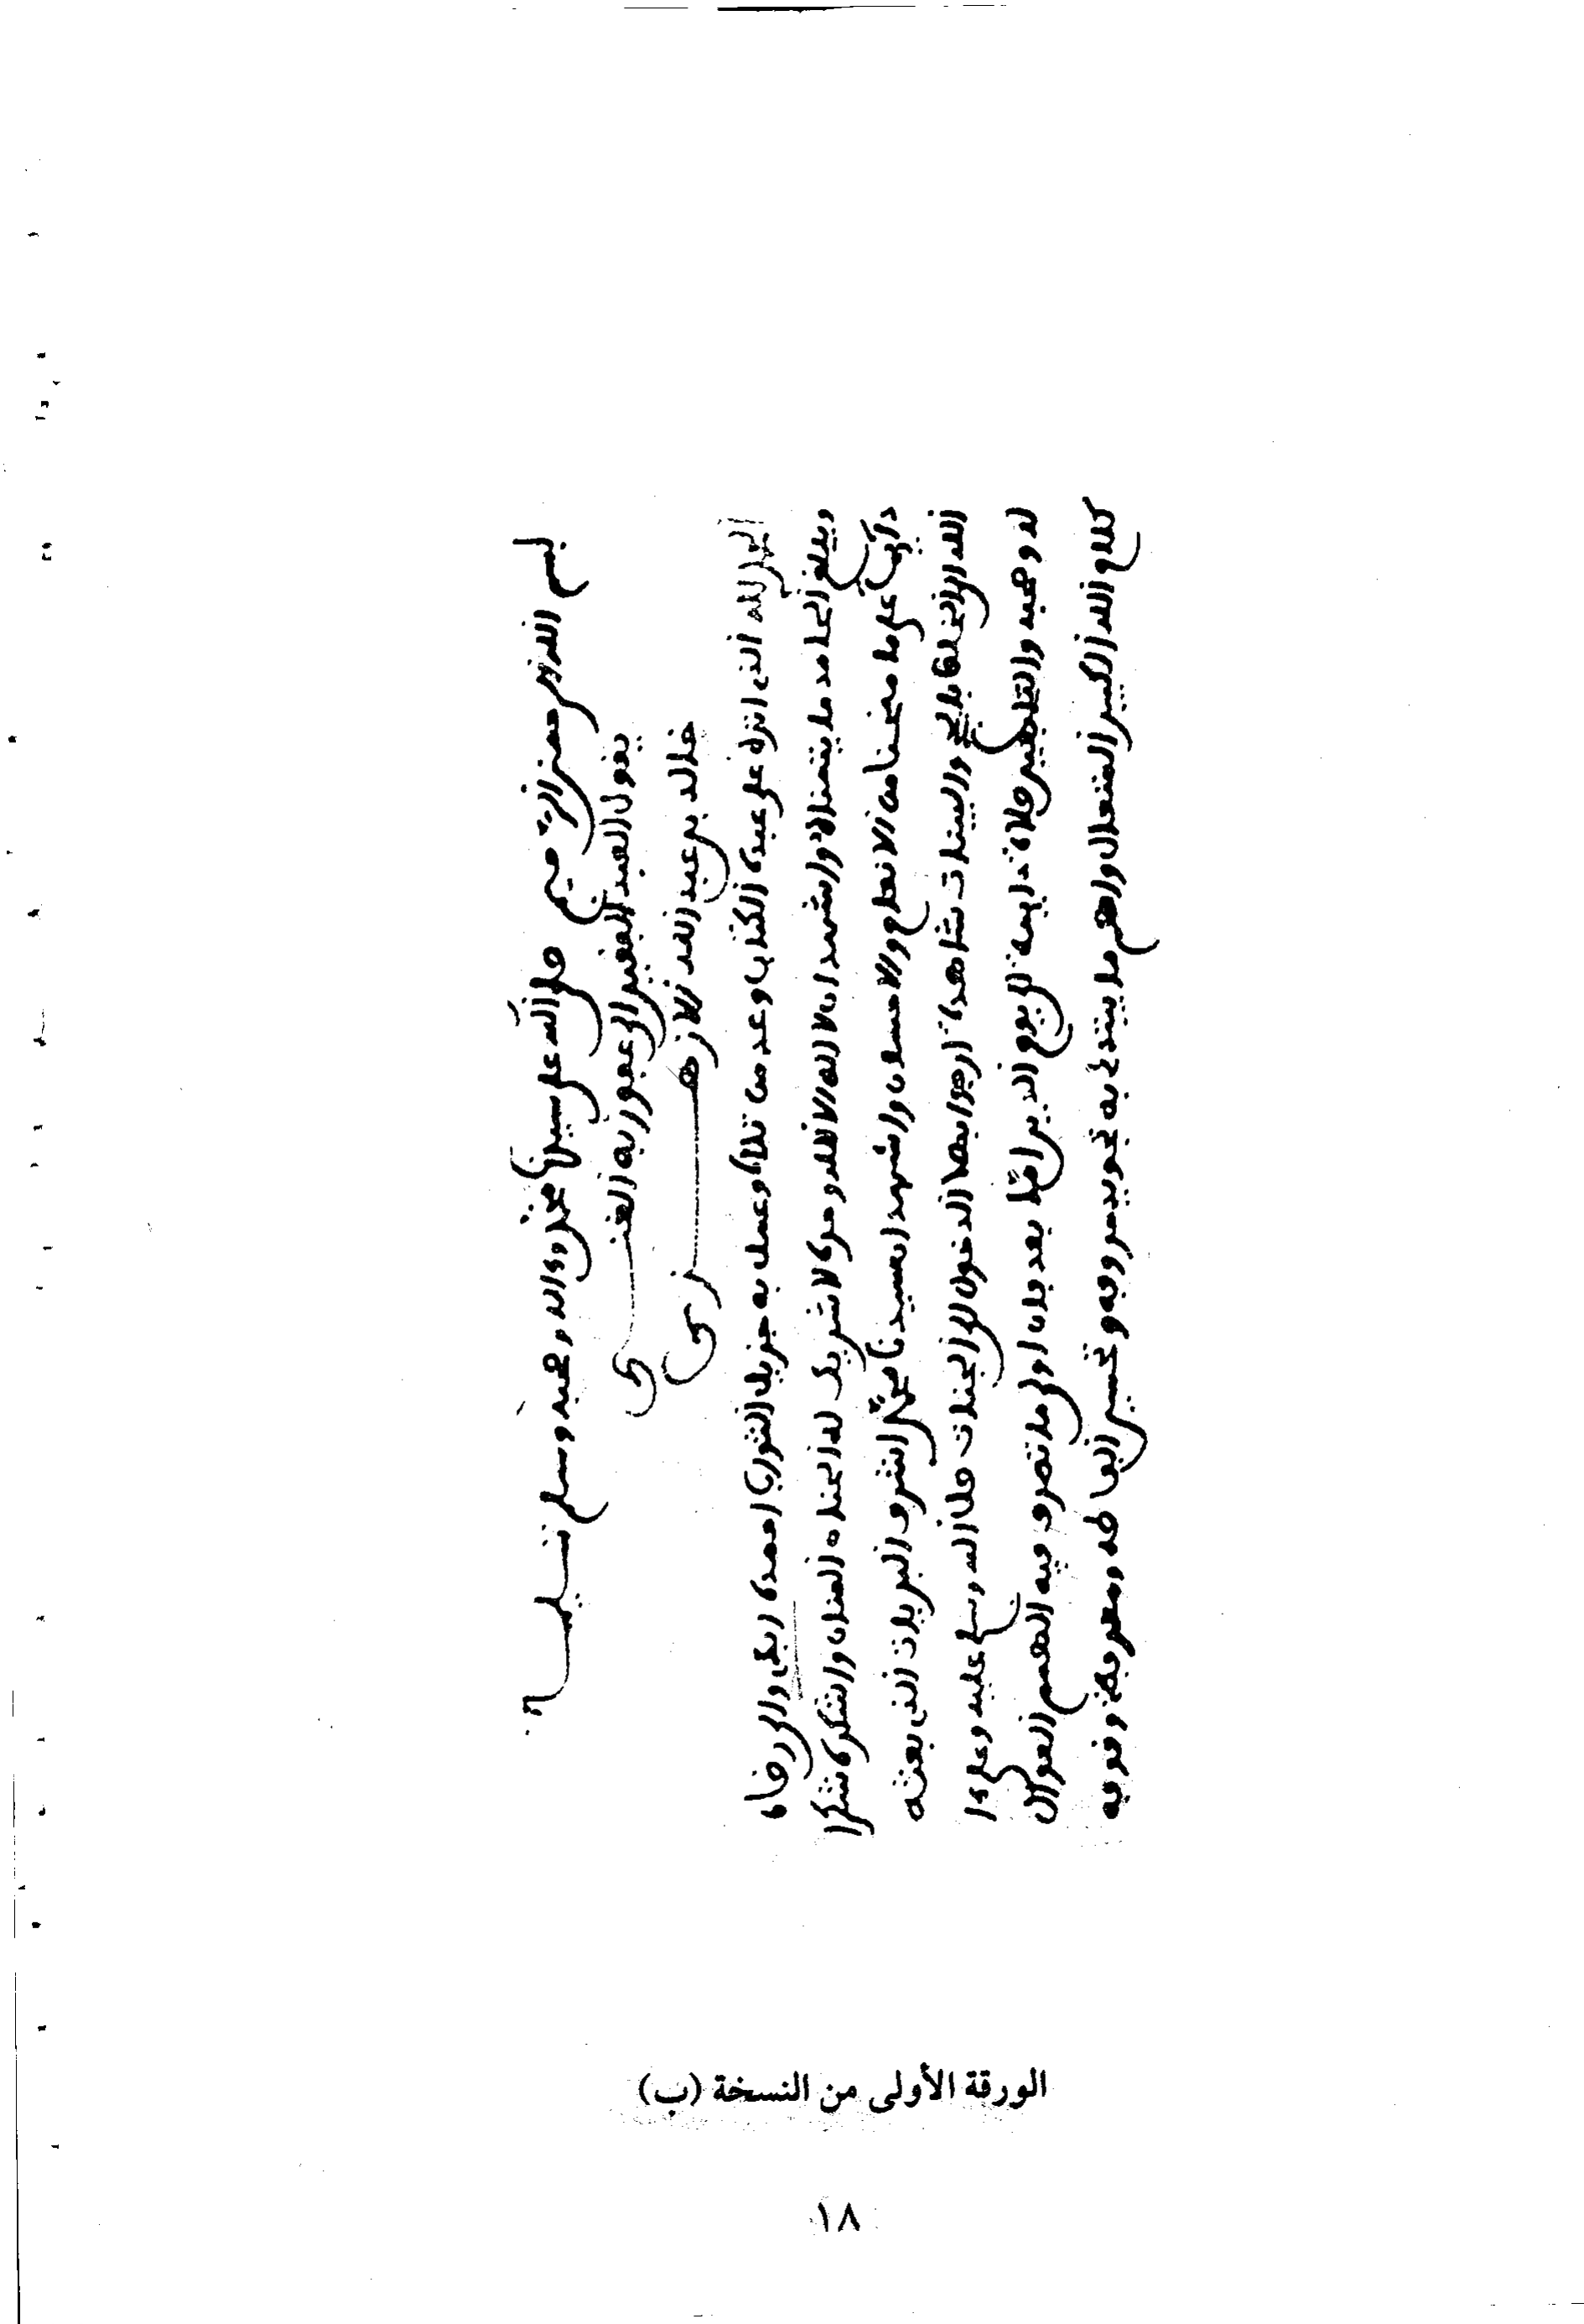 بسم الله الرحمن الرحيم صلى الله على سيدنا محمد وءاله وصحبه وسلم تسليما
يقول العبد الفقير الى عفو ربه الغنى
خالد بن عبد الله الازهرى
الحمد لله الذى انزل على عبده الكتاب وعد من تلاه وعمل به جزيل الثواب احمده
الحامد ما يتمناه واشهد ان لا اله الا الله وحده لا شريك له الحنان المنان واشكره شكرا
على ما منحنا من الانعام والاحسان واشهد ان سيدنا محمد اشرف البريات الذى بعثه
الله الى الخلق بالايات والبينات شاهدة ارجوا بها الدخول الى الجنات صلى الله وسلم عليه وعلى ءا
له وصحبه والتابعين صلاة دايمة الى يوم الدين اما بعد فان اولى ما تصرف فيه الهمم العوال
كلام الله الكبير المتعال واهم ما يبتدا به تجويد حروفه وتحسين الفاظه ومعرفة وقوفه
الورقة الأولى من النسخة (ب)
١٨